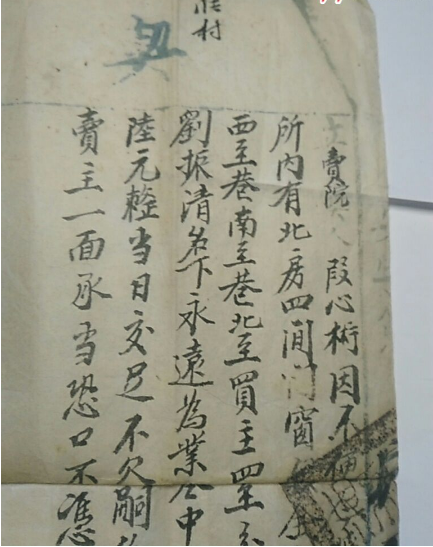 村
賣院人段心術因不
所內有北房四间门窗
西至巷南至巷北至買主四至
劉振清名下永遠為業仝中
陸元整当日交足不欠嗣
賣主一面承当恐口不憑